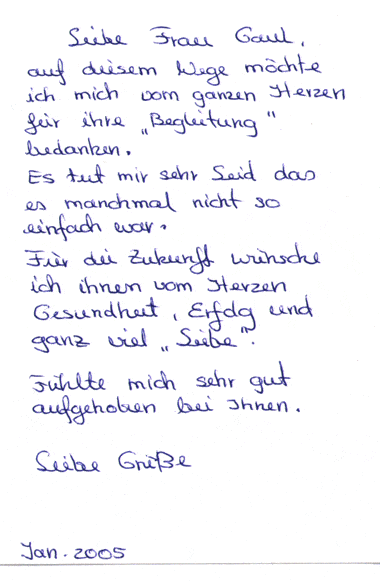 Liebe Frau Gaul,
auf diesem Wege möchte
ich mich vom ganzen Herzen
für ihre „Begleitung"
bedanken.
Es tut mir sehr Leid das
es manchmal nicht so
einfach war.
Für die Zukunft wünsche
ich ihnen vom Herzen
Gesundheit, Erfolg und
ganz viel „Liebe".
Fühlte mich sehr gut
aufgehoben bei Ihnen.
Liebe Grüße
Jan. 2005